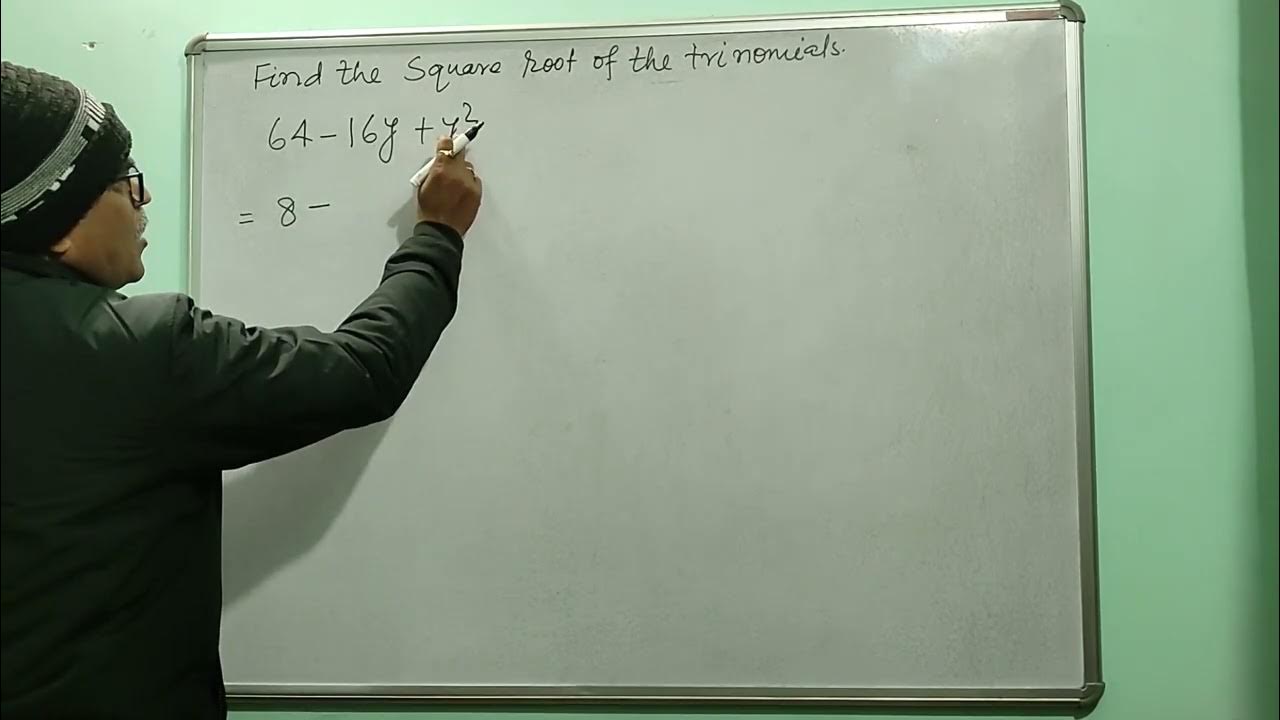 Find the Square root of the trinomials.
64 - 16y + y²
= 8 -